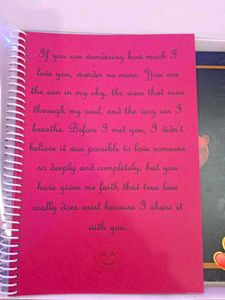 If you are wondering how much I
love you, wonder no more. You are
the sun in my sky, the river that runs
through my soul, and the very air I
breathe. Before I met you, I didn't
believe it was possible to love someone
so deeply and completely, but you
have given me faith that true love
really does exist because I share it
with you.